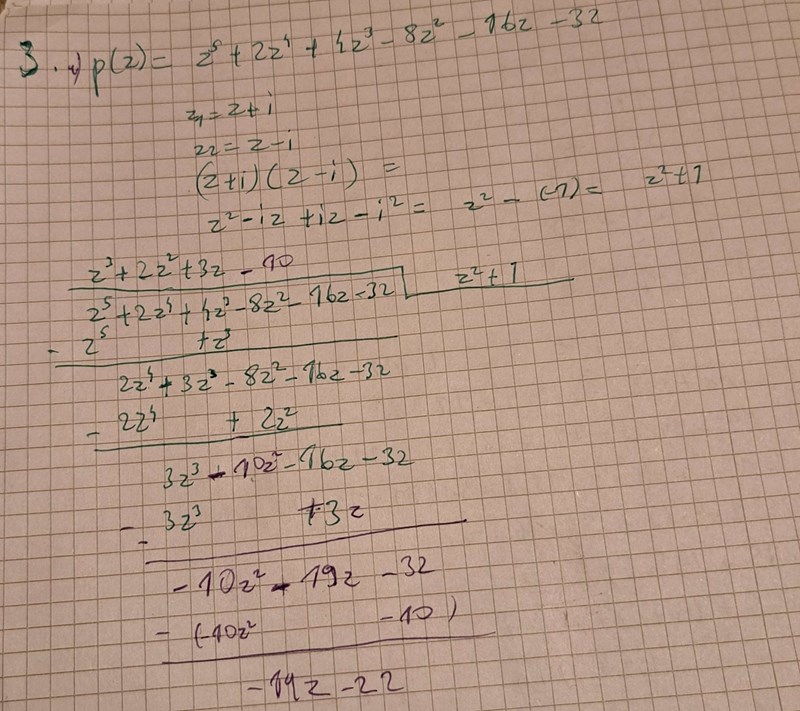 3. a) p(z) = z⁵ + 2z⁴ + 4z³ - 8z² - 16z - 32
z₁ = z + i
z₂ = z - i
(z+i)(z-i) =
z² - iz + iz - i² = z² - (-1) = z² + 1
z³ + 2z² + 3z - 10
z⁵ + 2z⁴ + 4z³ - 8z² - 16z - 32 z² + 1
- z⁵ + z³
2z⁴ + 3z³ - 8z² - 16z - 32
- 2z⁴ + 2z²
3z³ - 10z² - 16z - 32
- 3z³ + 3z
- 10z² - 19z - 32
- (-10z² - 10)
- 19z - 22